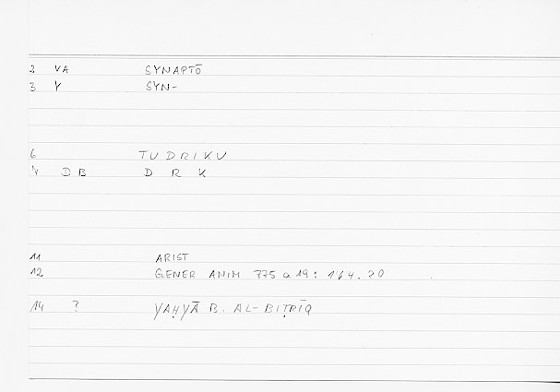 2 VA SYNAPTŌ
3 Y SYN-
6 TUDRIKU
D B D R K
11 ARIST
12 GENER ANIM 775 a 19: 164.20
14 ? YAḤYĀ B. AL-BIṬRĪQ